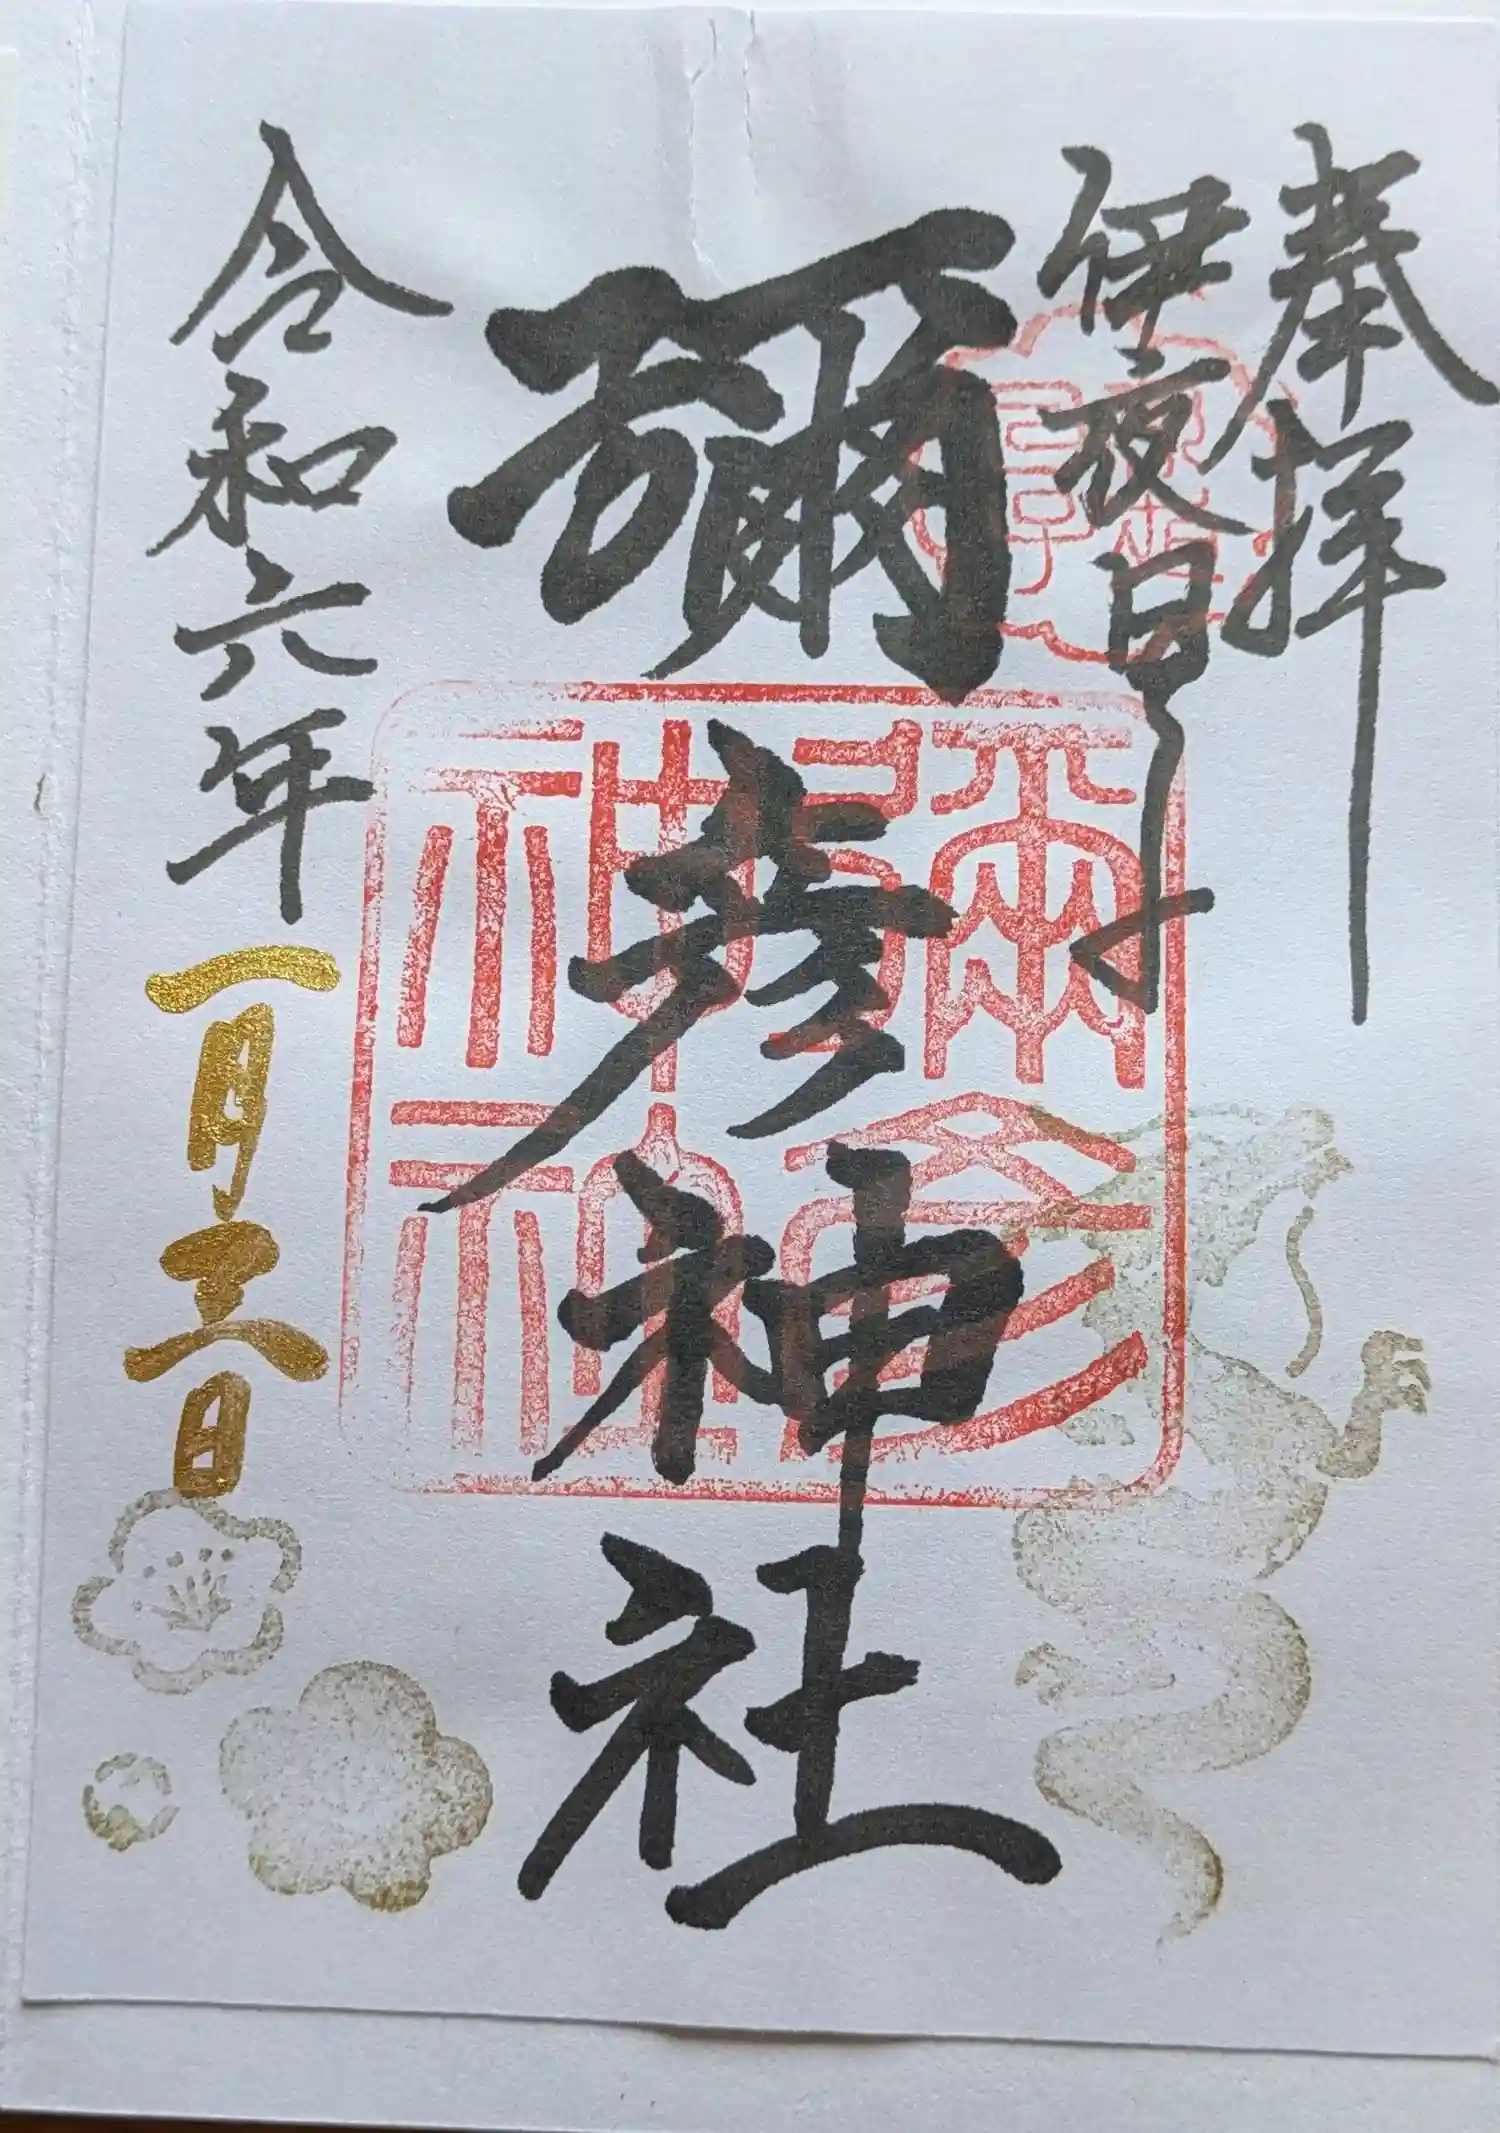 奉拝
伊夜日子
彌彦神社
令和六年一月三日
彌彦
神社